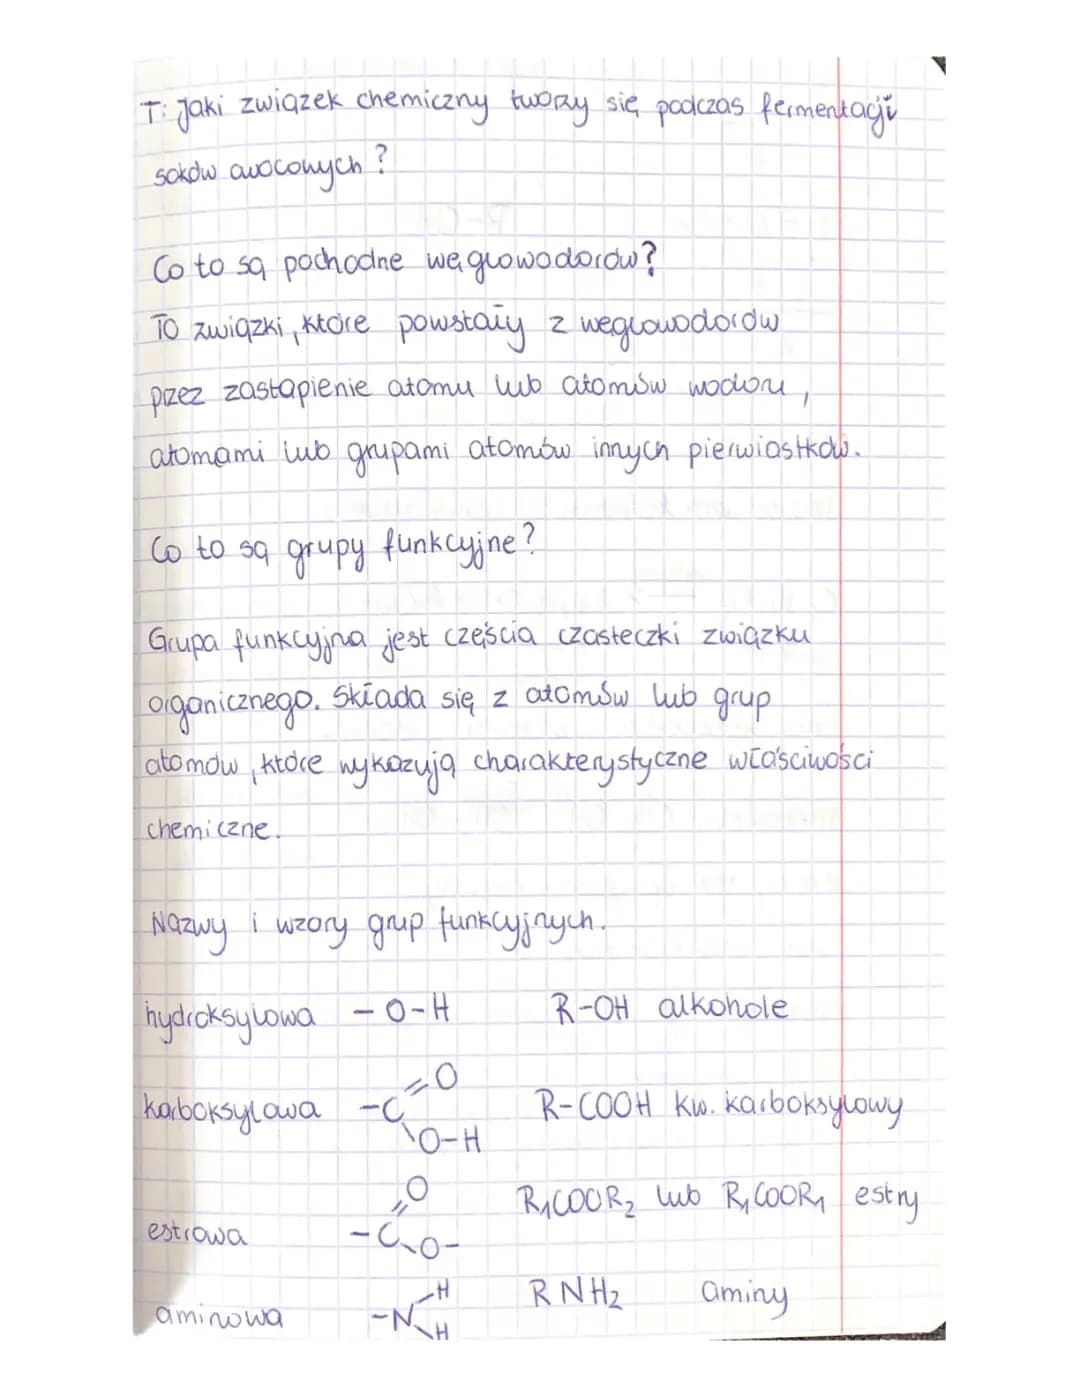 T: Jaki związek chemiczny tworzy się podczas fermentacji
soków owoconych?
Co to są pochodne węglowodorów?
To związki, które powstały z węglowodorów
przez zastąpienie atomu lub atomów wodoru,
atomami lub grupami atomów innych pierwiastków.
Co to są grupy funkcyjne?
Grupa funkcyjna jest częścia cząsteczki związku
organicznego. Składa się z atomów lub grup
atomów, które wykazują charakterystyczne właściwości
chemiczne.
Nazwy i wzory grup funkcyjnych.
hydroksylowa -O-H R-OH alkohole
karboksylowa -C=O \O-H R-COOH kw. karboksylowy
estrowa -C=O \O- R₁COOR₂ lub R₁COOR₁ estry
aminowa -N-H \H RNH₂ aminy